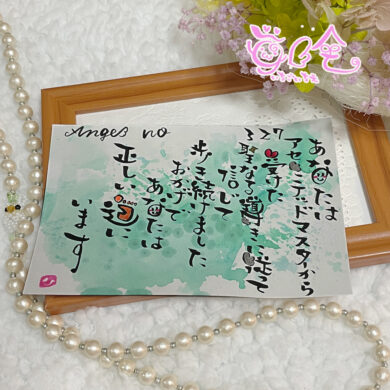 Anges no
327
あなたは
アセンデッドマスターから
受けた
聖なる導きに従って
信じて
歩き続けました
おかげで
あなたは
正しい道に
います